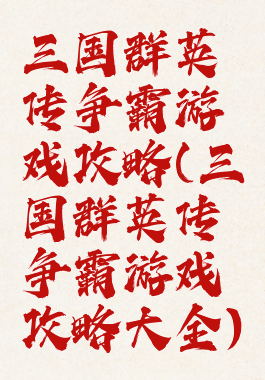 三国群英
传争霸游
戏攻略(三
国群英传
争霸游戏
攻略大全)